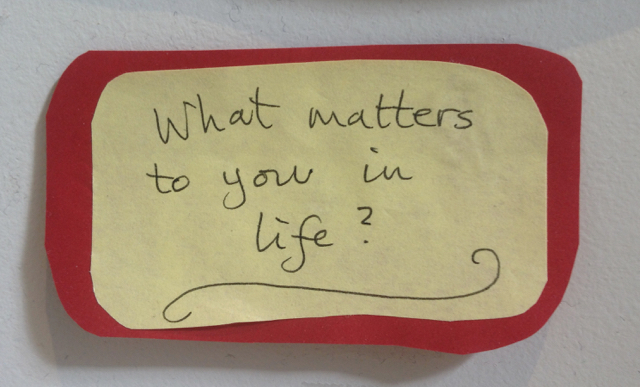 What matters
to you in
life?